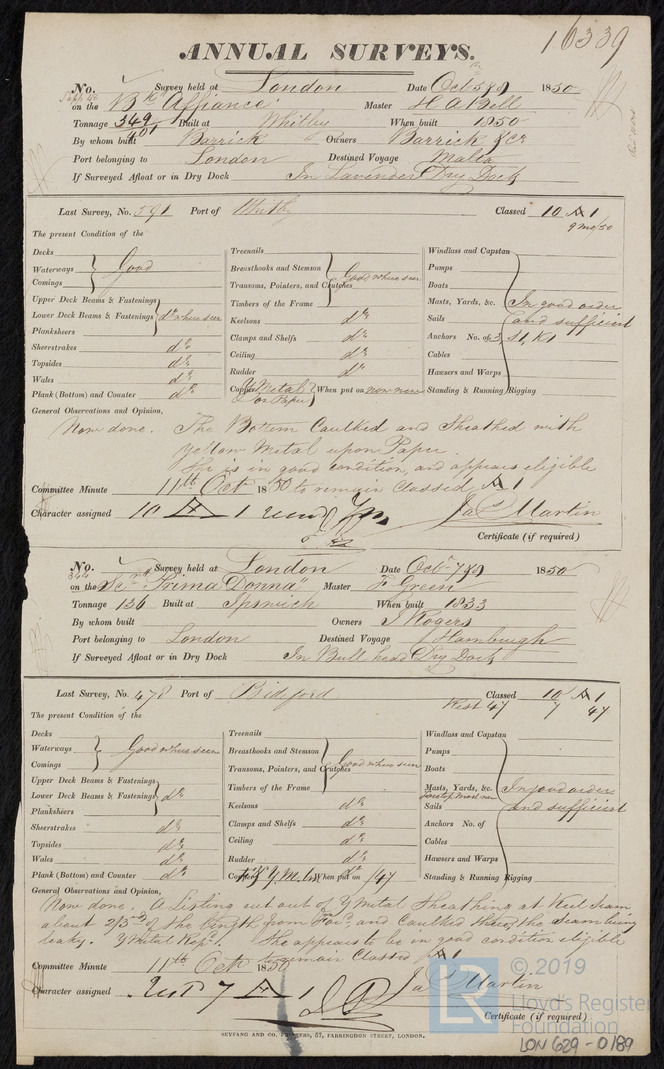 16339
ANNUAL SURVEYS.
No. Survey held at London Date Oct 5 & 8 1850
on the Bk Alliance Master H A Bell
Tonnage 349 Built at Whitby When built 1850
401
By whom built Barrick Owners Barrick & Co
Port belonging to London Destined Voyage Malta
If Surveyed Afloat or in Dry Dock In Lavender Dry Dock
Last Survey, No. 591 Port of Whitby Classed 10 A 1
9 mo/50
The present Condition of the
Decks Treenails Windlass and Capstan
Waterways Good Breasthooks and Stemson Good where seen Pumps
Comings Transoms, Pointers, and Crutches Boats
Upper Deck Beams & Fastenings Timbers of the Frame Masts, Yards, &c. In good order
Lower Deck Beams & Fastenings do where seen Keelsons do Sails and sufficient
Planksheers Clamps and Shelfs do Anchors No. of 3, S1, K1
Sheerstrakes do Ceiling do Cables
Topsides do Rudder do Hawsers and Warps
Wales do Copper Y Metal When put on now new Standing & Running Rigging
Plank (Bottom) and Counter do on Paper
General Observations and Opinion,
Now done. The Bottom Caulked and Sheathed with
Yellow Metal upon Paper.
She is in good condition, and appears eligible
Committee Minute 11th Oct 1850 to remain Classed A 1
Character assigned 10 A 1 Jas Martin
Certificate (if required)
No. Survey held at London Date Octr 7 & 9 1850
344
on the Scr "Prima Donna" Master F Green
Tonnage 136 Built at Ipswich When built 1833
By whom built Owners J Rogers
Port belonging to London Destined Voyage Hamburgh
If Surveyed Afloat or in Dry Dock In Bull head Dry Dock
Last Survey, No. 478 Port of Bideford Classed 10 A 1
Rest 47 7 47
The present Condition of the
Decks Treenails Windlass and Capstan
Waterways Good where seen Breasthooks and Stemson Good where seen Pumps
Comings Transoms, Pointers, and Crutches Boats
Upper Deck Beams & Fastenings Timbers of the Frame Masts, Yards, &c. In good order
Lower Deck Beams & Fastenings do Keelsons do Sails and sufficient
Planksheers Clamps and Shelfs do Anchors No. of
Sheerstrakes do Ceiling do Cables
Topsides do Rudder do Hawsers and Warps
Wales do Y.M. When put on /47 Standing & Running Rigging
Plank (Bottom) and Counter do
General Observations and Opinion,
Now done. A Listing cut out of Y Metal Sheathing at Keel Seam
about 2/3rds of the length from Ford and Caulked the seam being
leaky. Y Metal Repd. She appears to be in good condition eligible
to remain Classed A 1
Committee Minute 11th Oct 1850
Character assigned Rest 7 A 1 Jas Martin
Certificate (if required)
SEYFANG AND CO. PRINTERS, 57, FARRINGDON STREET, LONDON.
© 2019
LR Lloyd's Register
Foundation
LON 629 - 0189